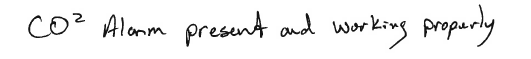 CO² Alarm present and working properly